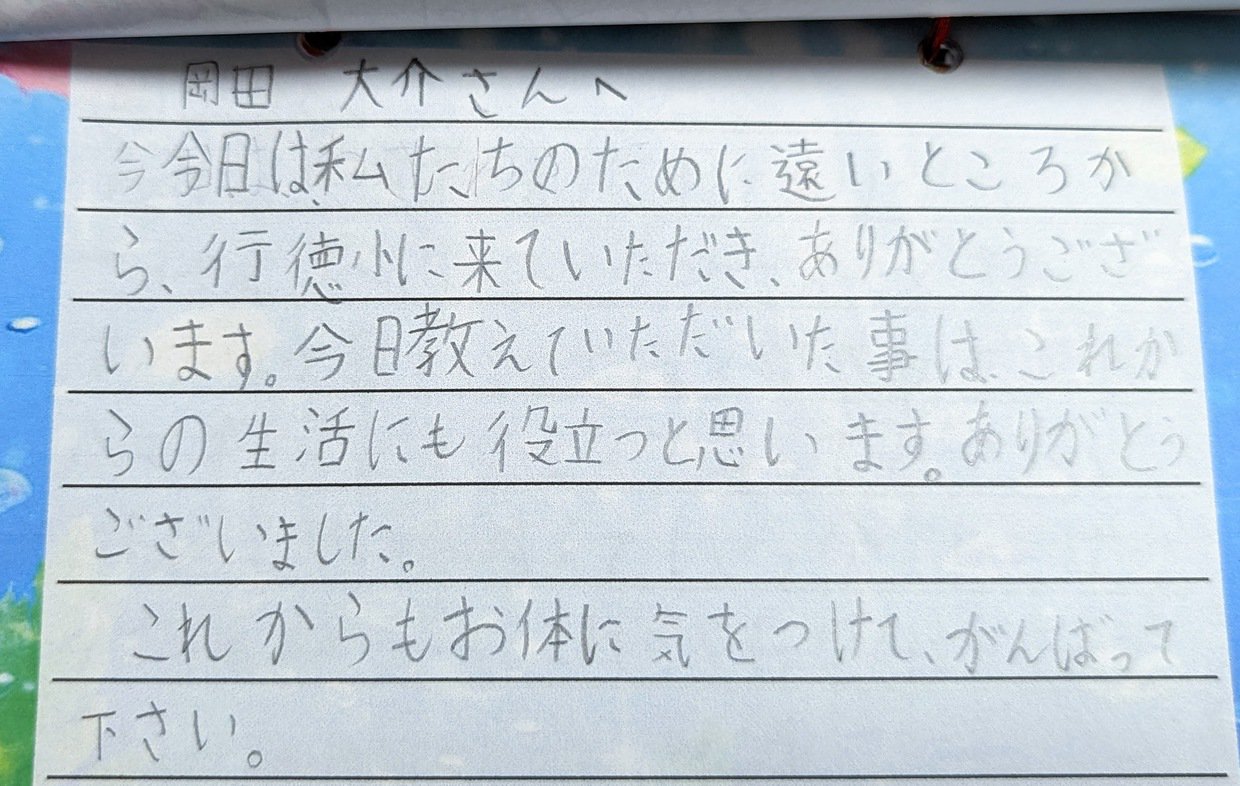 岡田 大介さんへ
今今日は私たちのために遠いところか
ら、行徳小に来ていただき、ありがとうござ
います。今日教えていただいた事は、これか
らの生活にも役立つと思います。ありがとう
ございました。
これからもお体に気をつけて、がんばって
下さい。